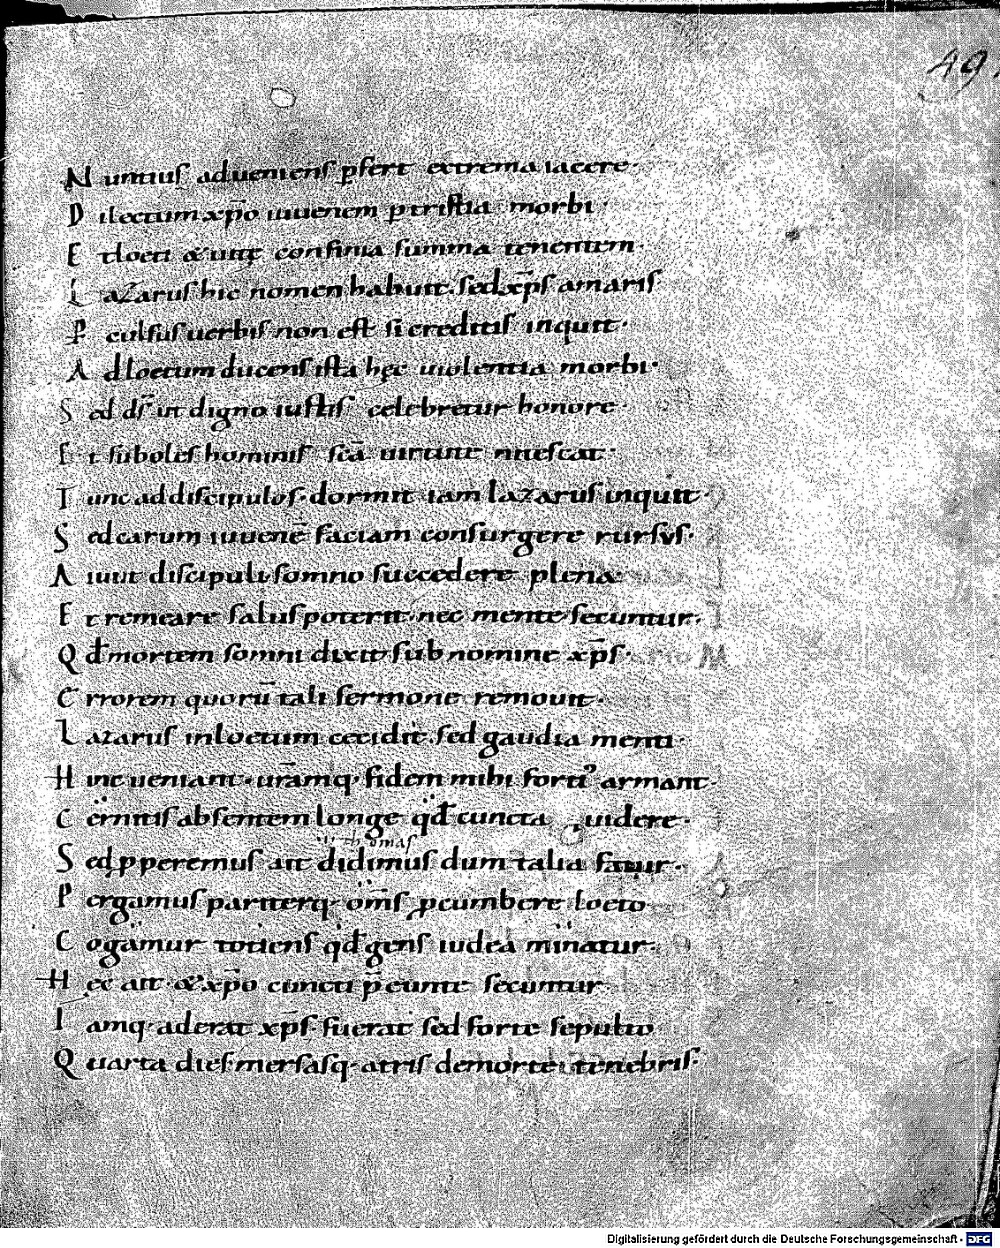 49
Nuntius adueniens ꝑfert extrema iacere·
Dilectum xp̄o iuuenem ꝑ tristia morbi·
Et loeti & uitę confinia summa tenentem·
Lazarus hic nomen habuit· sed xp̄s amaris
P culsus uerbis non est si creditis inquit·
Ad loetum ducens ista hęc uiolentia morbi·
Sed dī ut digno iustus celebretur honore·
Et suboles hominis sc̄a uirtute nitescat·
Tunc ad discipulos· dormit iam lazarus inquit·
Sed carum iuuenē faciam consurgere rursus·
Aiunt discipuli somno succedere plena
Et remeare salus poterit· nec mente secuntur·
Qđ mortem somni dixit sub nomine xp̄s·
Errorem quorū tali sermone remouit·
Lazarus in loetum cecidit· sed gaudia menti·
Hinc ueniant· ur̄amq· fidem mihi fortiꝰ armant·
Cernitis absentem longe qđ cuncta uidere·
thomas
Sed ꝓperemus ait didimus dum talia fatur·
Pergamus pariterq· om̄s ꝓcumbere loeto
Cogamur totiens qđ gens iudea minatur·
Hęc ait· & xp̄o cuncti p̄eunte secuntur·
Iamq· aderat xp̄s· fuerat sed forte sepulto
Quarta dies· mersasq· atris de morte tenebris·
Digitalisierung gefördert durch die Deutsche Forschungsgemeinschaft - DFG